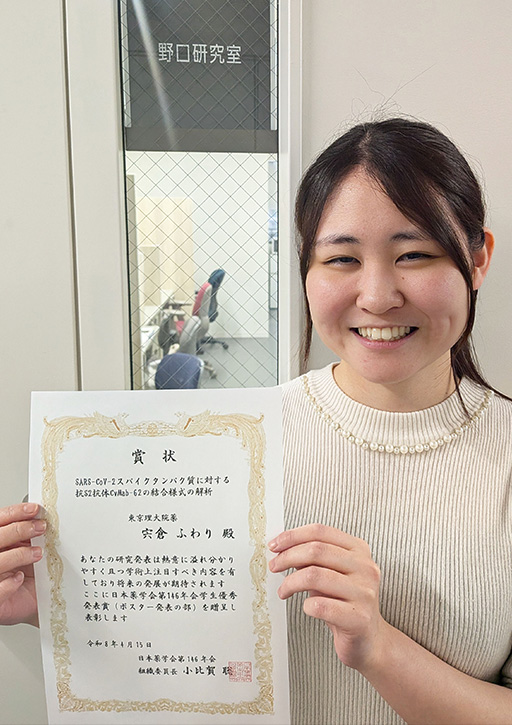 野口研究室
賞状
SARS-CoV-2スパイクタンパク質に対する
抗S2抗体CvMab-62の結合様式の解析
東京理大院薬
宍倉 ふわり 殿
あなたの研究発表は熱意に溢れ分かり
やすく且つ学術上注目すべき内容を有
しており将来の発展が期待されます
ここに日本薬学会第146年会学生優秀
発表賞（ポスター発表の部）を贈呈し
表彰します
令和8年4月15日
日本薬学会第146年会
組織委員長 小比賀 聡